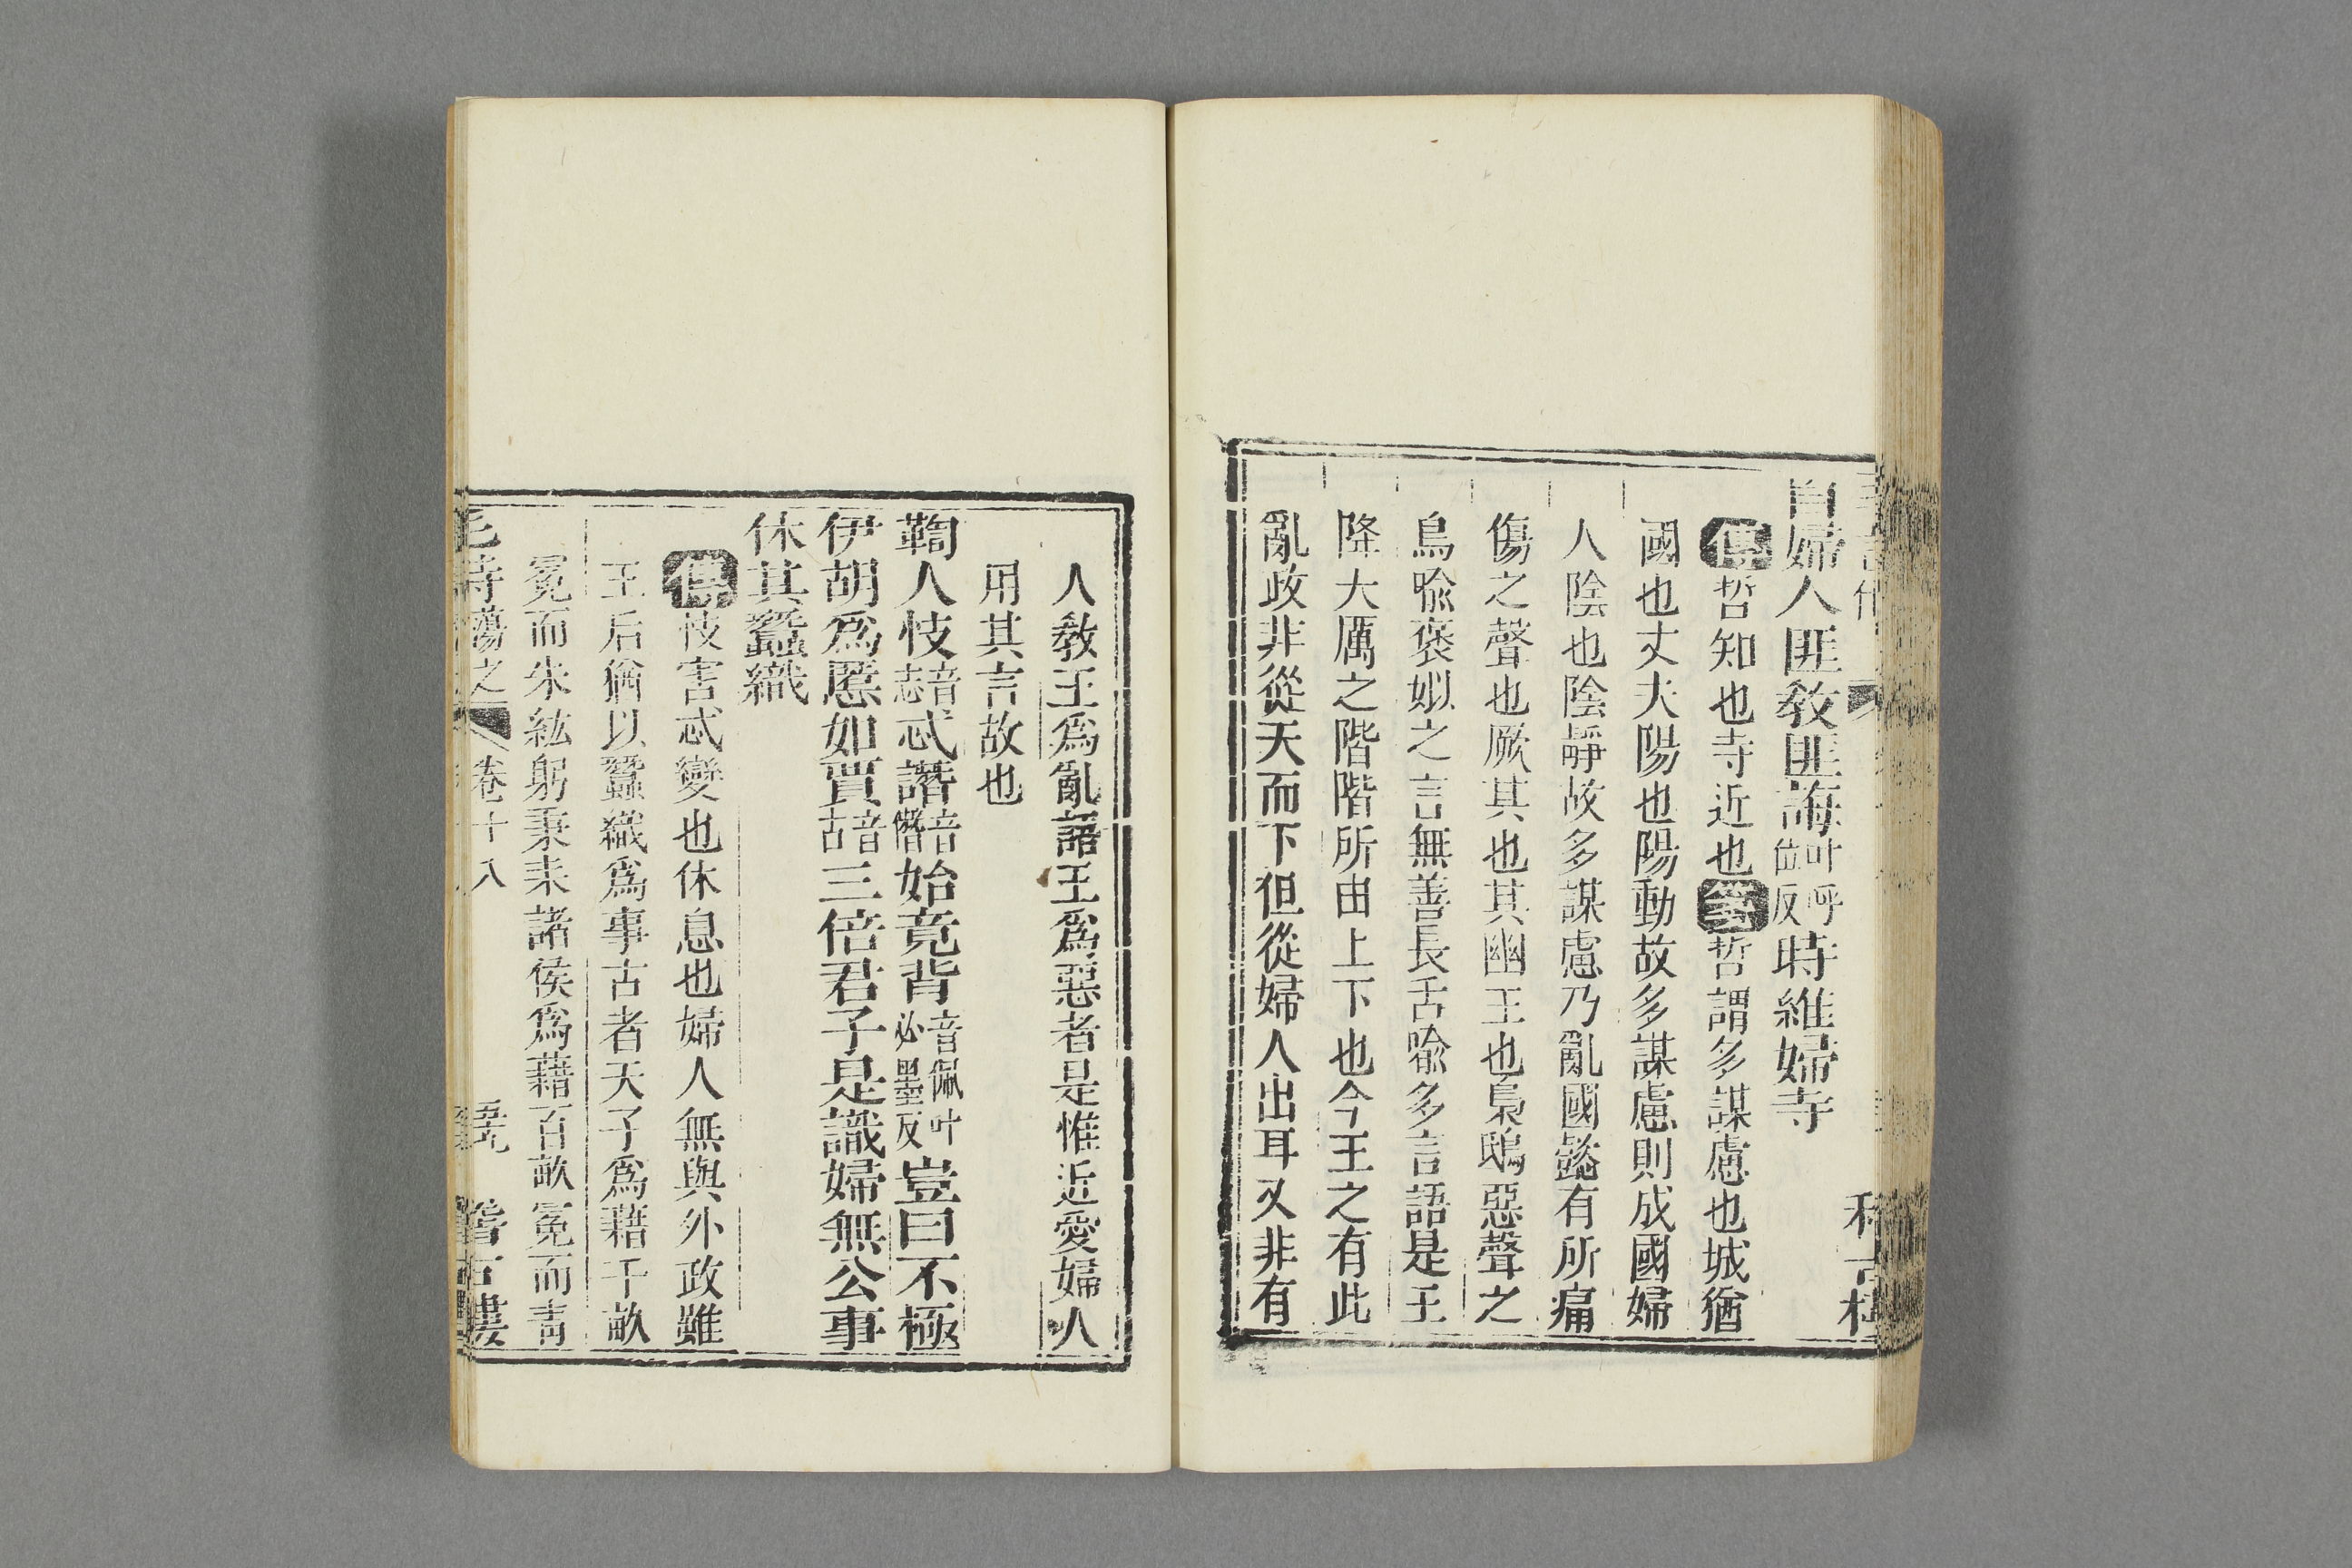 自婦人匪教匪誨叶呼位反時維婦寺
傳哲知也寺近也箋哲謂多謀慮也城猶
國也丈夫陽也陽動故多謀慮則成國婦
人陰也陰靜故多謀慮乃亂國懿有所痛
傷之聲也厥其也其幽王也梟鴟惡聲之
鳥喩褒姒之言無善長舌喩多言語是王
降大厲之階階所由上下也今王之有此
亂政非從天而下但從婦人出耳又非有
人敎王爲亂語王爲惡者是惟近愛婦人
用其言故也
鞫人忮音志忒譖音僭始竟背音佩叶必墨反豈曰不極
伊胡爲慝如賈音古三倍君子是識婦無公事
休其蠶織
傳忮害忒變也休息也婦人無與外政雖
王后猶以蠶織爲事古者天子爲藉千畝
冕而朱紘躬秉耒諸侯爲藉百畝冕而靑
毛詩蕩之 卷十八 稽古樓